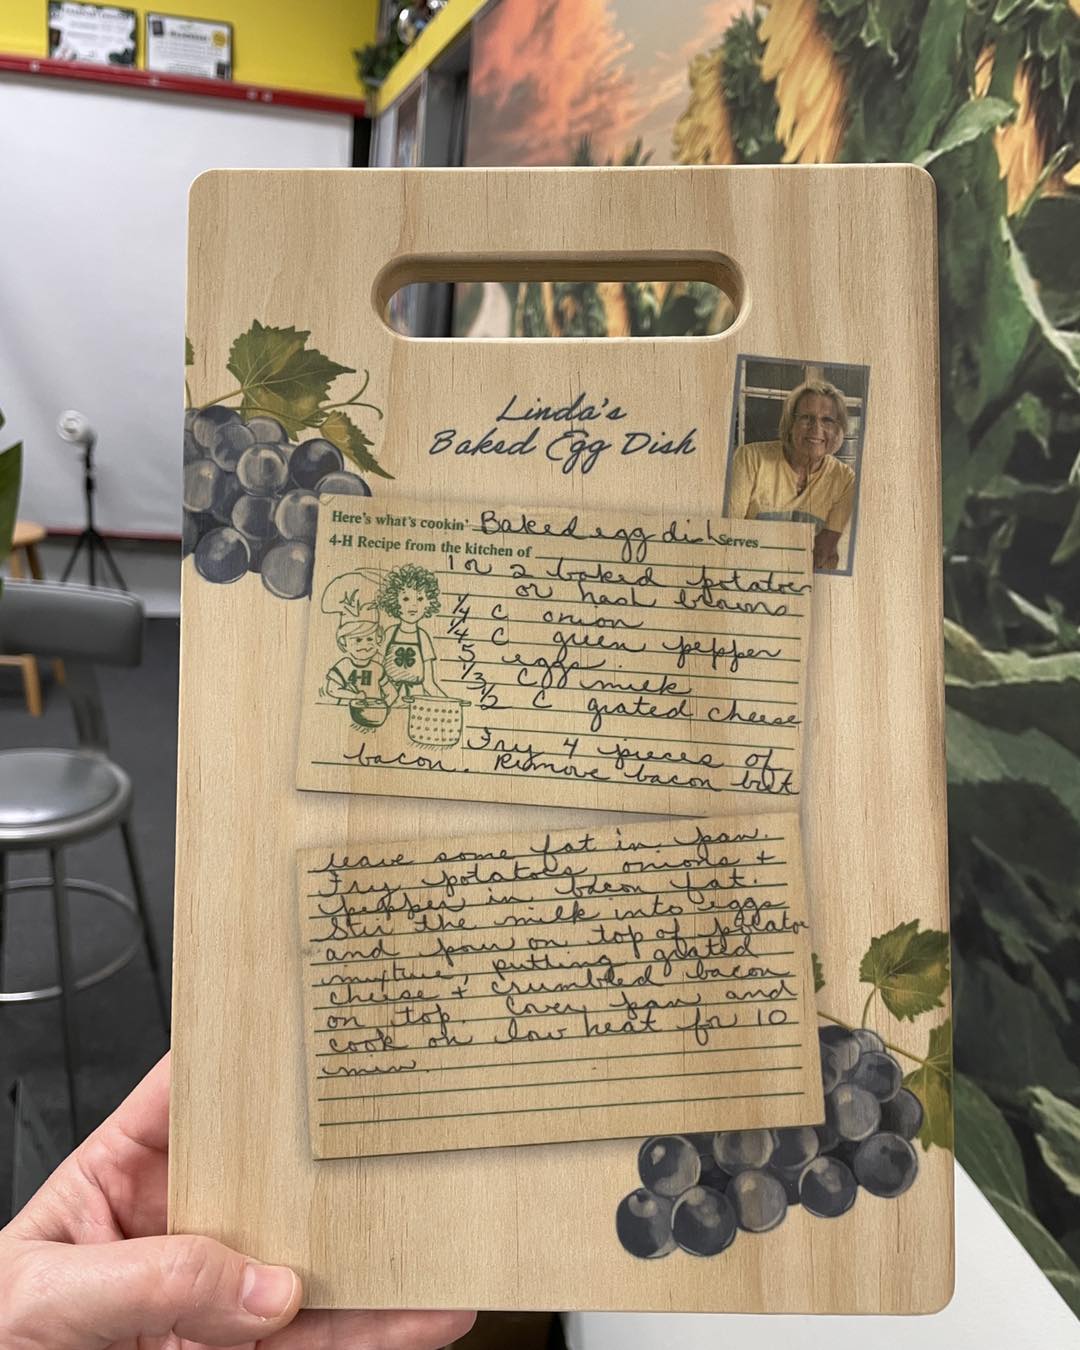 Linda's
Baked Egg Dish
Here's what's cookin' Baked egg dish Serves
4-H Recipe from the kitchen of
1 or 2 baked potatoes
or hash browns
1/4 C onion
1/4 C green pepper
5 eggs.
1/3 C milk
1/2 C grated cheese
4-H
Fry 4 pieces of
bacon. Remove bacon but
leave some fat in pan.
Fry potatoes onions +
pepper in bacon fat.
Stir the milk into eggs
and pour on top of potato
mixture, putting grated
cheese + crumbled bacon
on top. Cover pan and
cook on low heat for 10
min.